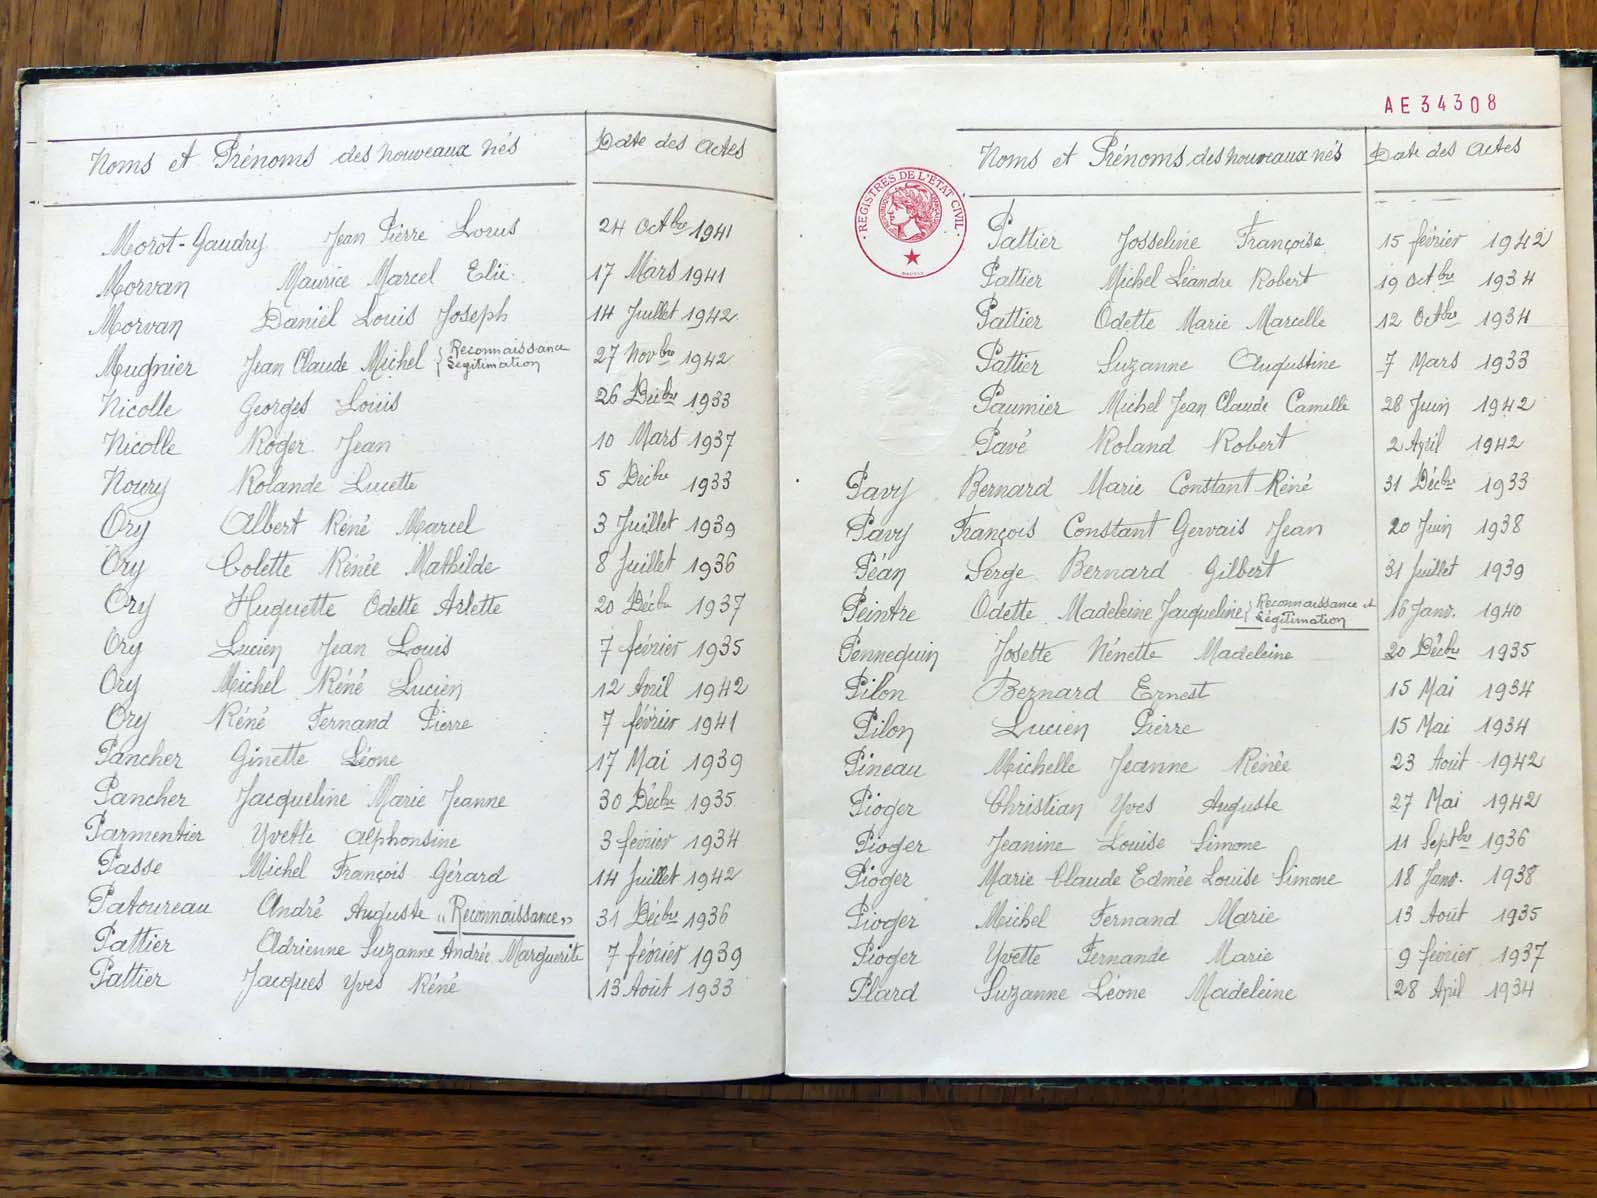 Noms et Prénoms des nouveaux nés Date des actes
Morot-Gaudry Jean Pierre Louis 24 Octbre 1941
Morvan Maurice Marcel Elie 17 Mars 1941
Morvan Daniel Louis Joseph 14 Juillet 1942
Mugnier Jean Claude Michel { Reconnaissance Légitimation 27 Novbre 1942
Nicolle Georges Louis 26 Décbre 1933
Nicolle Roger Jean 10 Mars 1937
Noury Rolande Lucette 5 Décbre 1933
Ory Albert Réné Marcel 3 Juillet 1939
Ory Colette Rénée Mathilde 8 Juillet 1936
Ory Huguette Odette Arlette 20 Décbre 1937
Ory Lucien Jean Louis 7 février 1935
Ory Michel Réné Lucien 12 Avril 1942
Ory Réné Fernand Pierre 7 février 1941
Pancher Ginette Léone 17 Mai 1939
Pancher Jacqueline Marie Jeanne 30 Décbre 1935
Parmentier Yvette Alphonsine 3 février 1934
Passe Michel François Gérard 14 Juillet 1942
Patoureau André Auguste "Reconnaissance" 31 Décbre 1936
Pattier Adrienne Suzanne Andrée Marguerite 7 février 1939
Pattier Jacques Yves Réné 13 Août 1933
AE34308
Noms et Prénoms des nouveaux nés Date des actes
REGISTRES DE L'ETAT CIVIL
Pattier Josseline Françoise 15 février 1942
Pattier Michel Léandre Robert 19 Octbre 1934
Pattier Odette Marie Marcelle 12 Octbre 1934
Pattier Suzanne Augustine 7 Mars 1933
Paumier Michel Jean Claude Camille 28 Juin 1942
Pavé Roland Robert 2 April 1942
Pavy Bernard Marie Constant Réné 31 Décbre 1933
Pavy François Constant Gervais Jean 20 Juin 1938
Péan Serge Bernard Gilbert 31 Juillet 1939
Peintre Odette Madeleine Jacqueline { Reconnaissance et Légitimation 16 Janv. 1940
Pennequin Josette Nénette Madeleine 20 Décbre 1935
Pilon Bernard Ernest 15 Mai 1934
Pilon Lucien Pierre 15 Mai 1934
Pineau Michelle Jeanne Rénée 23 Août 1942
Pioger Christian Yves Auguste 27 Mai 1942
Pioger Jeanine Louise Simone 11 Septbre 1936
Pioger Marie Claude Edmée Louise Simone 18 Janv. 1938
Pioger Michel Fernand Marie 13 Août 1935
Pioger Yvette Fernande Marie 9 février 1937
Plard Suzanne Léone Madeleine 28 April 1934